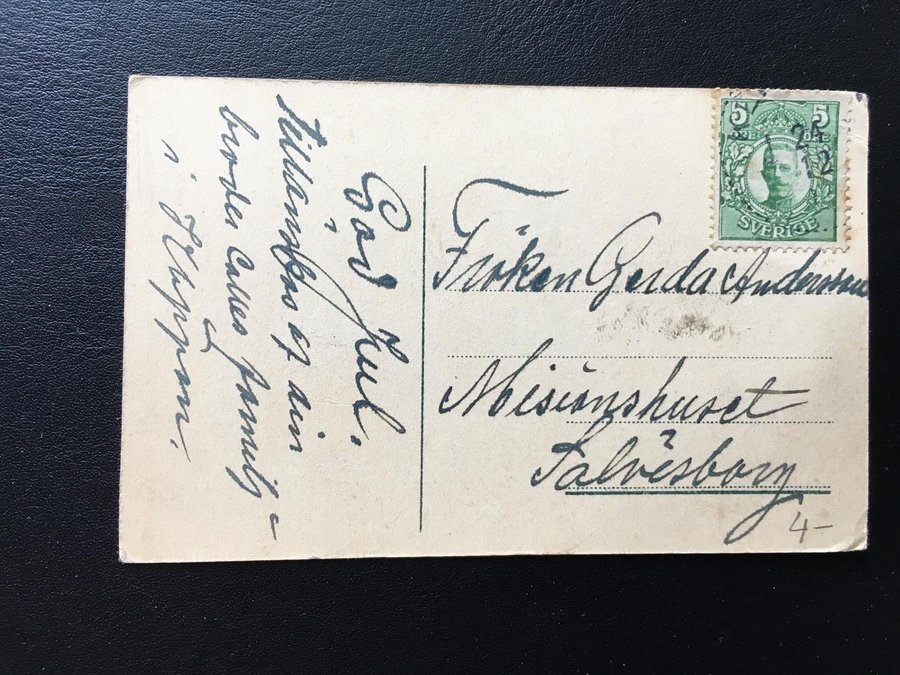 God Jul.
tillönskas af din
broder Calles familj
i
5 5
SVERIGE
24
12
Fröken Gerda Andersson
Misionshuset
Sölvesborg
4-